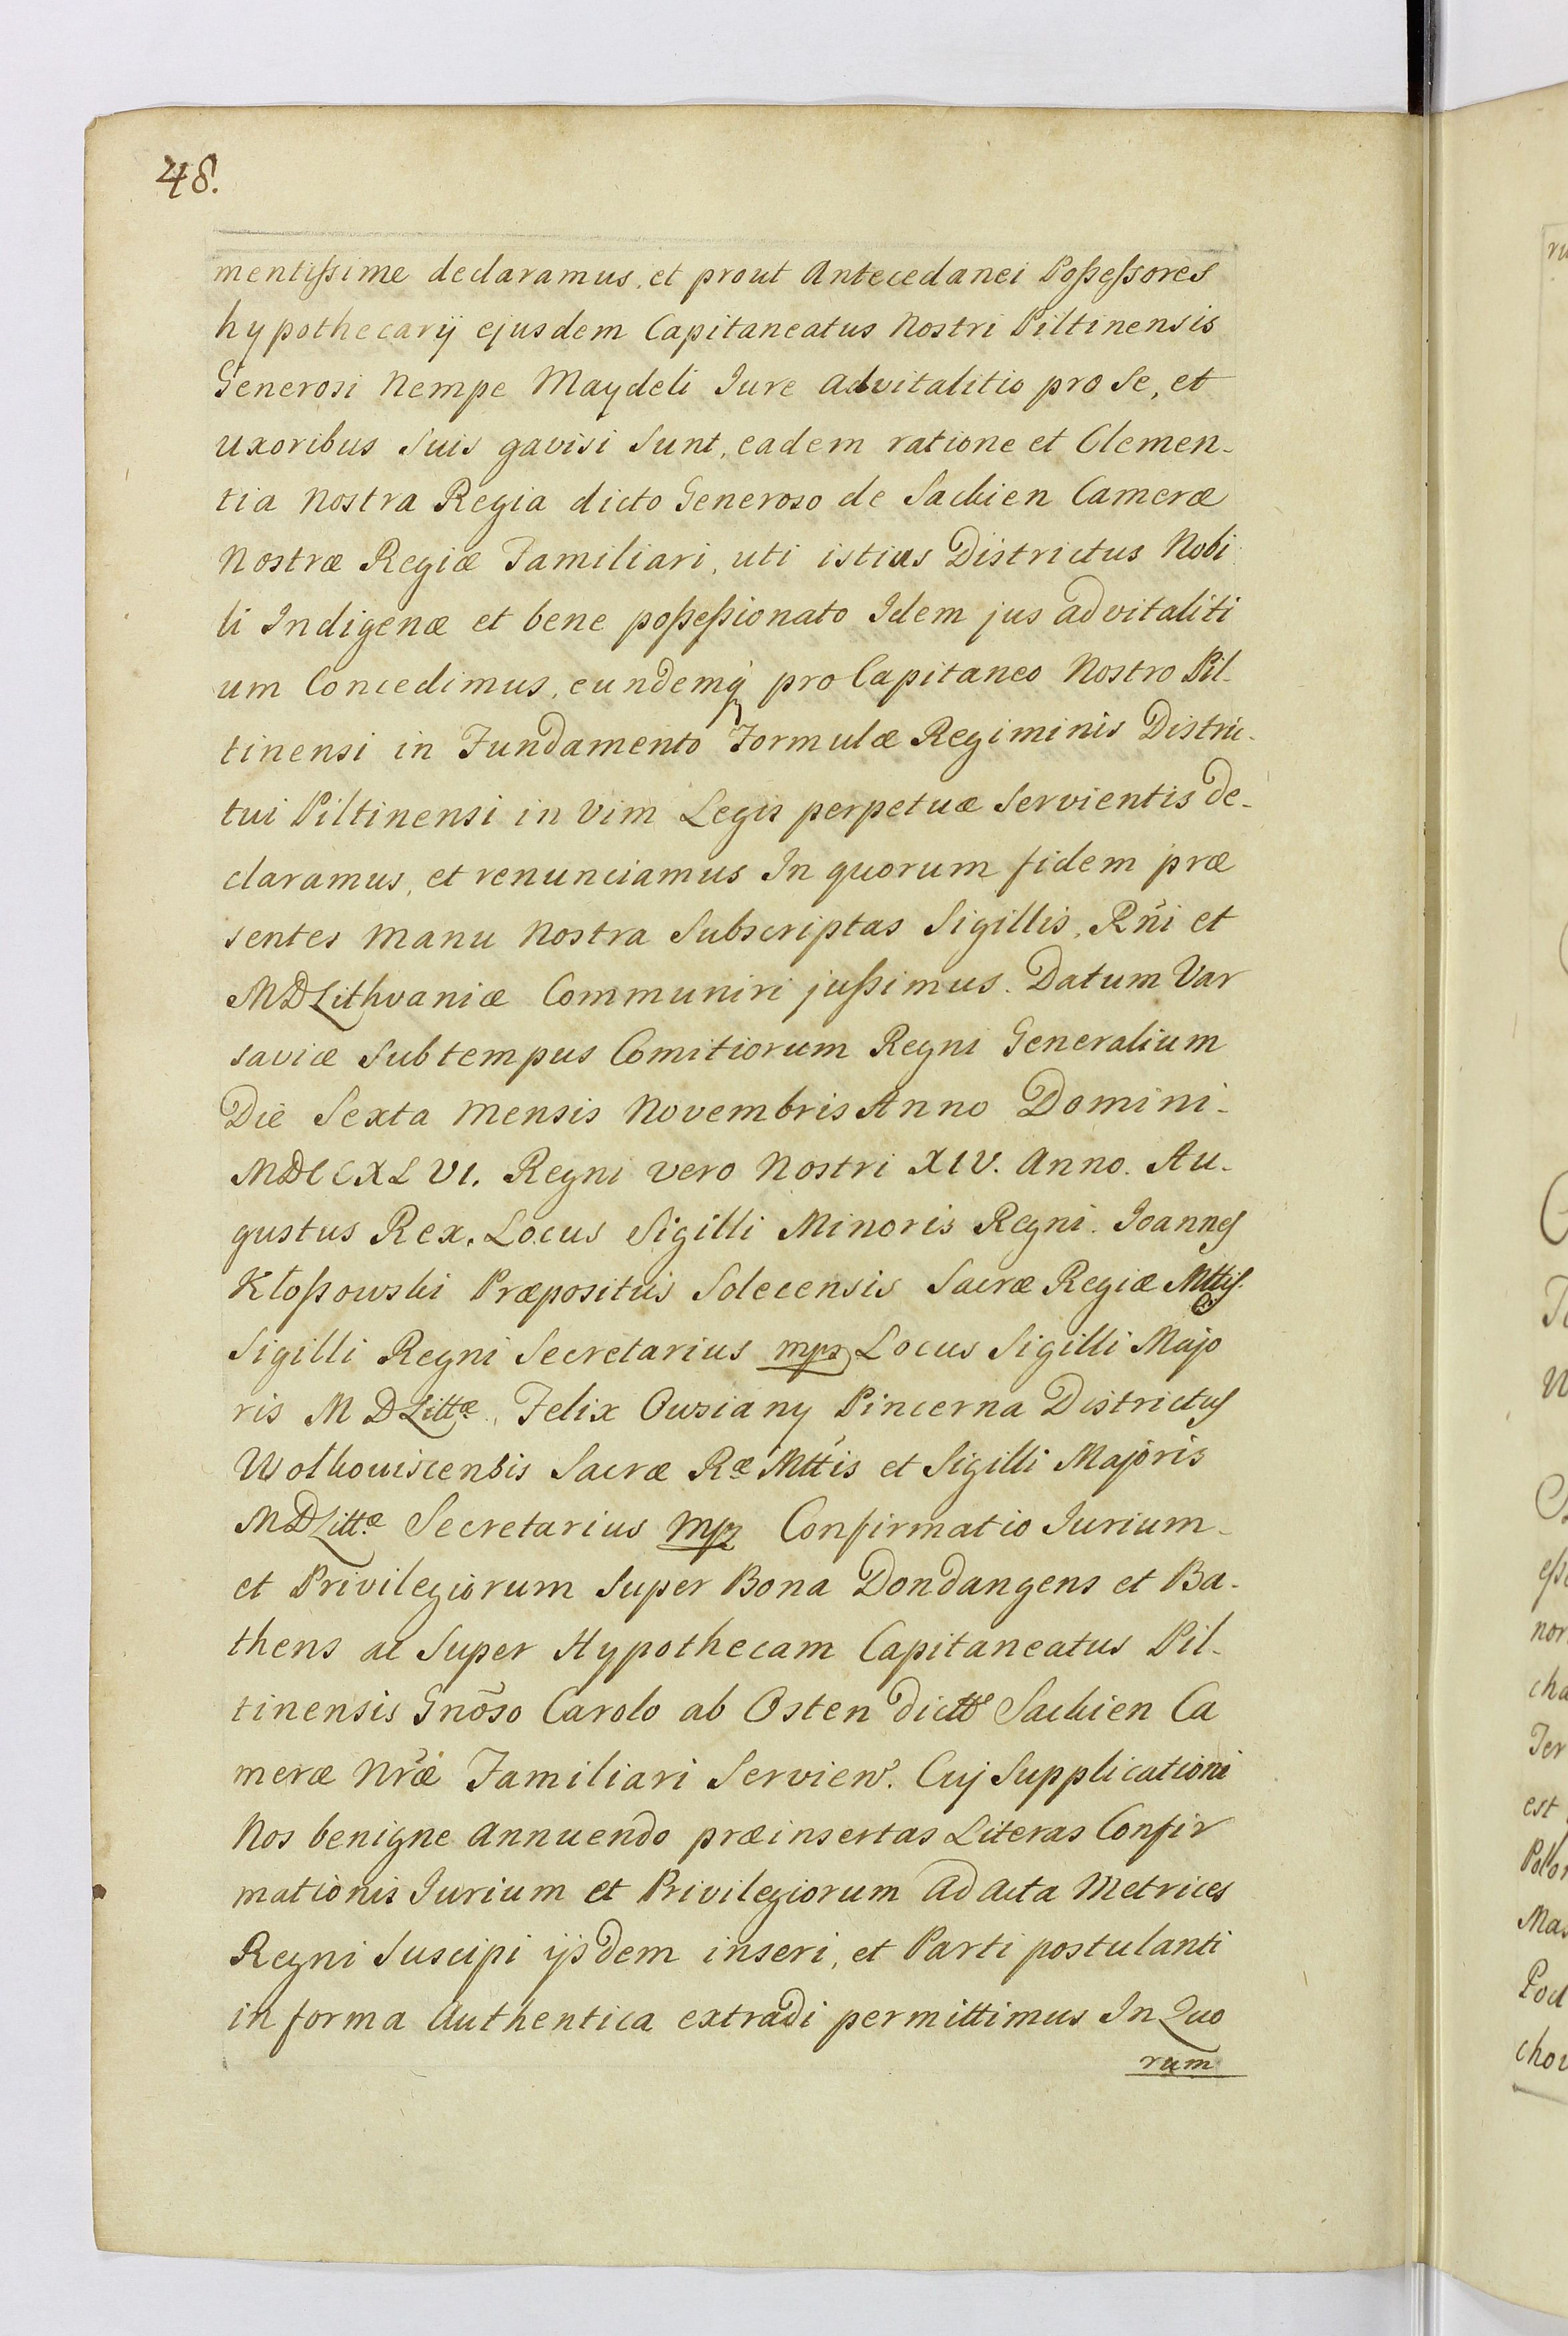 48.
mentiſsime declaramus, et prout Antecedanei Poſseſsores
hypothecarij ejusdem Capitaneatus Nostri Piltinensis
Generosi Nempe Maydeli Jure advitalitio pro Se, et
uxoribus Suis gavisi Sunt, eadem ratione et Clemen-
tia Nostra Regia dicto Generoso de Sacken Cameræ
Nostræ Regiæ Familiari, uti istius Districtus Nobi
li Indigenæ et bene poſseſsionato Idem jus advitaliti
um Concedimus, eundemq́ pro Capitaneo Nostro Pil-
tinensi in Fundamento Formulæ Regiminis Distric-
tui Piltinensi in Vim Legis perpetuæ Servientis de-
claramus, et renunciamus In quorum fidem præ
sentes Manu Nostra Subscriptas Sigillis, Rñi et
MDLithvaniæ Communiri juſsimus. Datum Var
saviæ Sub tempus Comitiorum Regni Generalium
Die Sexta Mensis Novembris Anno Domini-
MDCCXLVI. Regni vero Nostri XIV. Anno. Au-
gustus Rex. Locus Sigilli Minoris Regni. Joannes
Kłoſsowski Præpositus Solecensis Sacræ Regiæ Mttis.
Sigilli Regni Secretarius mpr Locus Sigilli Majo
ris M D Littæ. Felix Owsiany Pincerna Districtus
Wołkowiscensis Sacræ Ræ Mttis et Sigilli Majoris
MDLittæ Secretarius Mpr Confirmatio Jurium-
et Privilegiorum Super Bona Dondangens et Ba-
thens ac Super Hypothecam Capitaneatus Pil-
tinensis Gnõso Carolo ab Osten dicto Sacken Ca
meræ Nræ Familiari Servien. Cuj Supplicationi
Nos benigne annuendo præinsertas Literas Confir
mationis Jurium et Privilegiorum ad Acta Metrices
Regni Suscipi ijsdem inseri, et Parti postulanti
in forma Authentica extradi permittimus In Quo
rum